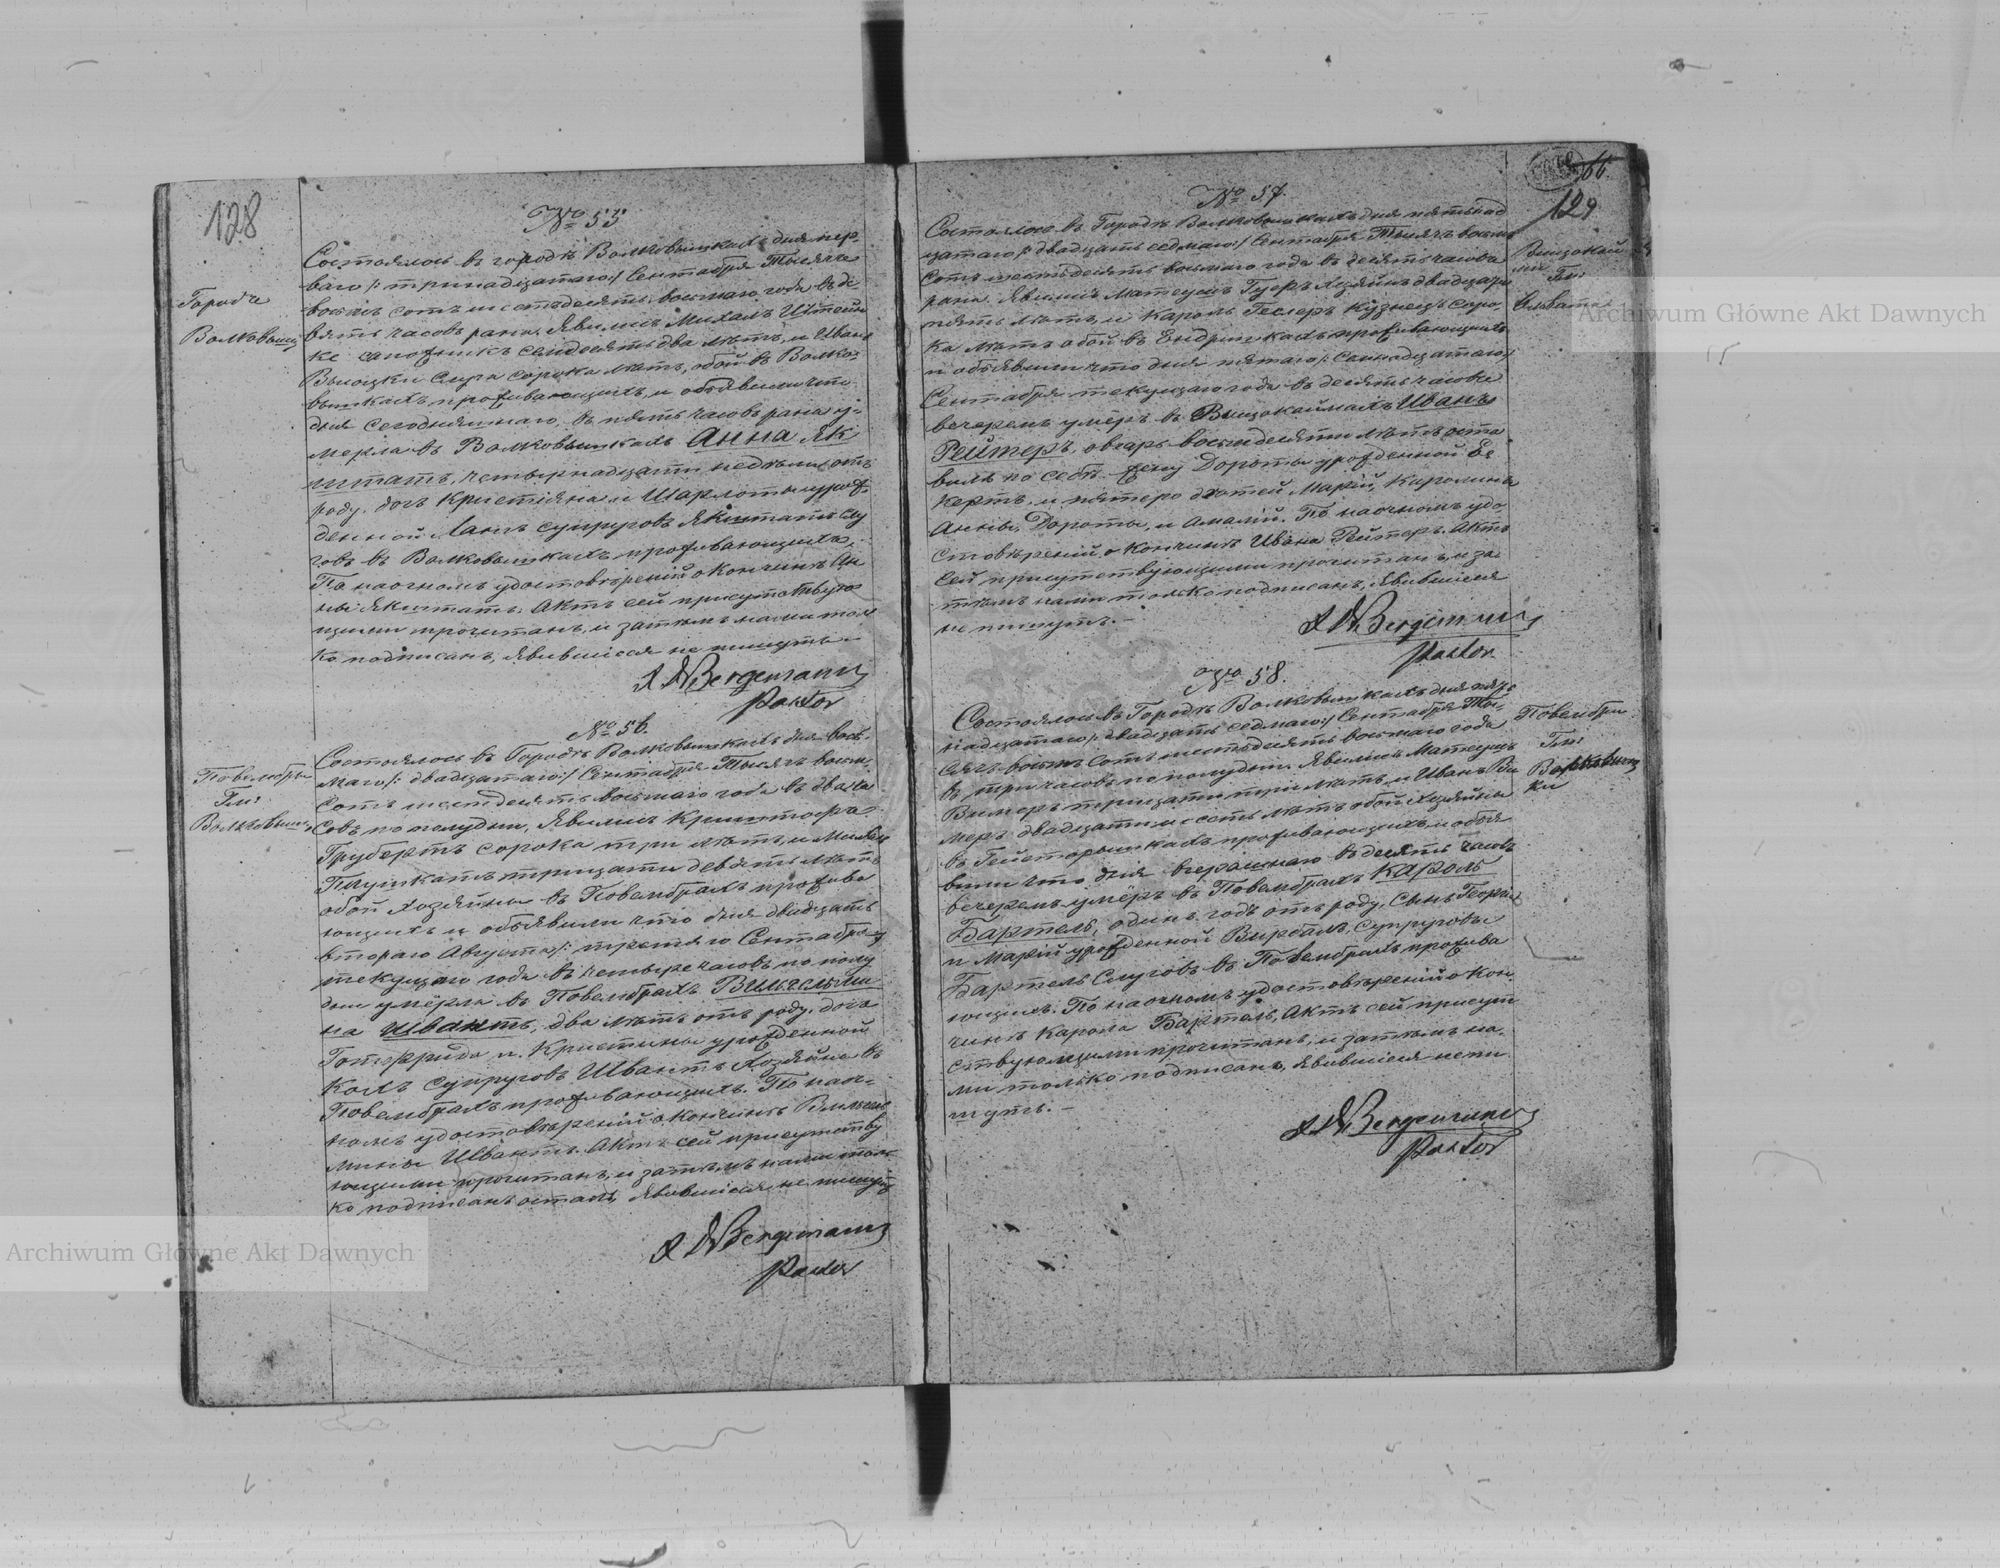 128
№ 55
Городъ
Волковыш.
Состоялось въ городѣ Волковышкахъ дня пер-
ваго /: тринадцатаго :/ Сентября Тысяча
восемь сотъ шестьдесятъ восьмаго года въ де
вять часовъ рана. Явились Михалъ Штейн
ке сапожникъ семдесятъ два лѣтъ, и Иванъ
Высоцки слуга сорока лѣтъ, обои въ Волко-
вышкахъ проживающихъ, и объявили что
дня сегодняшнаго, въ пять часовъ рана у-
мерла въ Волковышкахъ Анна Як
штатъ, четырнадцати недѣль отъ
роду, дочь Кристіяна и Шарлоты урож-
денной Ланъ супруговъ Якштатъ Слу
говъ въ Волковышкахъ проживающихъ.
По наочномъ удостовѣреній о кончинѣ Ан
ны Якштатъ. Актъ сей присутствую
щими прочитанъ, и затѣмъ нами толь
ко подписанъ, Явившіеся не пишутъ.—
Bergemann
Pastor
№ 56.
Повембры
Гми:
Волковышк
Состоялось въ Городѣ Волковышкахъ дня вось-
маго /: двадцатаго :/ Сентября Тысячъ восемь
сотъ шестдесятъ восьмаго года въ два ча
совъ по полудни, Явились Криштофъ
Грубертъ сорока три лѣтъ, и Михаль
тридцати девять лѣтъ
обои хозяйны въ Повембрахъ прожива
ющихъ и объявили что дня двадцать
втораго Августа /: третяго Сентября :/
текущаго года въ четыре часовъ по полу
дни умёрла въ Повембрахъ Вильгельми
на Швантъ, два лѣтъ отъ роду, дочь
Готфрида и Кристины урожденной
Кохъ супруговъ Швантъ Хозяйновъ въ
Повембрахъ проживающихъ. По наоч-
номъ удостовѣреній о кончинѣ Вильгель
мины Швантъ. Актъ сей присутству
ющими прочитанъ, и затѣмъ нами толь
ко подписанъ осталъ, Явившіеся не пишутъ
Bergemann
Pastor
66.
129
№ 57.
Гми:
Состоялось въ Городѣ Волковышкахъ дня пятьнад
цатаго /: двадцать седмаго :/ Сентября Тысячъ восемь
сотъ шестьдесятъ восьмаго года въ десять часовъ
рана. Явились Матеушъ Хозяйнъ двадцать
пять лѣтъ, и Кароль Геслеръ Кузнецъ соро-
ка лѣтъ обои въ Ендришкахъ проживающихъ
и объявили что дня пятаго /: семнадцатаго :/
Сентября текущаго года въ десять часовъ
вечеремъ умёръ въ Вишокаймахъ Иванъ
Рейтеръ, овчаръ восьмдесяти лѣтъ оста
вилъ по себѣ жену Дороты урожденной Бе
кертъ, и пятеро дѣтей Марій, Каролины
Анны, Дороты, и Амалій. По наочномъ удо
стовѣреній о кончинѣ Ивана Рейтеръ. Актъ
сей присутствующими прочитанъ, и за-
тѣмъ нами только подписанъ, Явившіеся
не пишутъ.—
Bergemann
Pastor
№ 58.
Повембры
Гми:
Состоялось въ Городѣ Волковышкахъ дня пят-
надцатаго /: двадцать седмаго :/ Сентября Ты-
сячъ восемь сотъ шестьдесятъ восьмаго года
въ три часовъ по полудни. Явились Матеушъ
Вимеръ тридцати три лѣтъ и Иванъ Ви
меръ двадцати шесть лѣтъ обои хозяйны
въ Гейсторышкахъ проживающихъ и объя
вили что дня вчерашнаго въ десять часовъ
вечеремъ умёръ въ Повембрахъ Кароль
Бартель, одинъ годъ отъ роду, Сынъ Георгія
и Марій урожденной Супруговъ
Бартель Слуговъ въ Повембрахъ прожива
ющихъ. По наочномъ удостовѣреній о кон
чинѣ Кароля Бартель, Актъ сей присут
ствующими прочитанъ, и затѣмъ на-
ми только подписанъ, Явившіеся непи
шутъ.—
Bergemann
Pastor
Archiwum Główne Akt Dawnych
Archiwum Główne Akt Dawnych